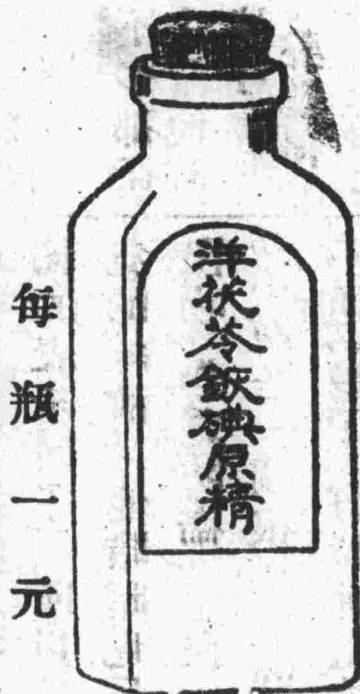 洋茯苓碘原精
每瓶一元